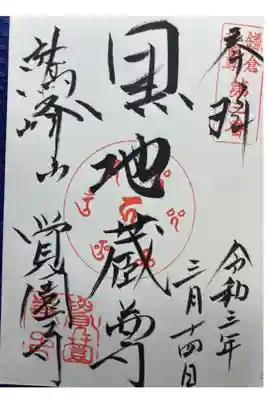 鎌倉
奉拝
令和三年
三月十四日
黒地蔵尊
鷲峰山
覚園寺